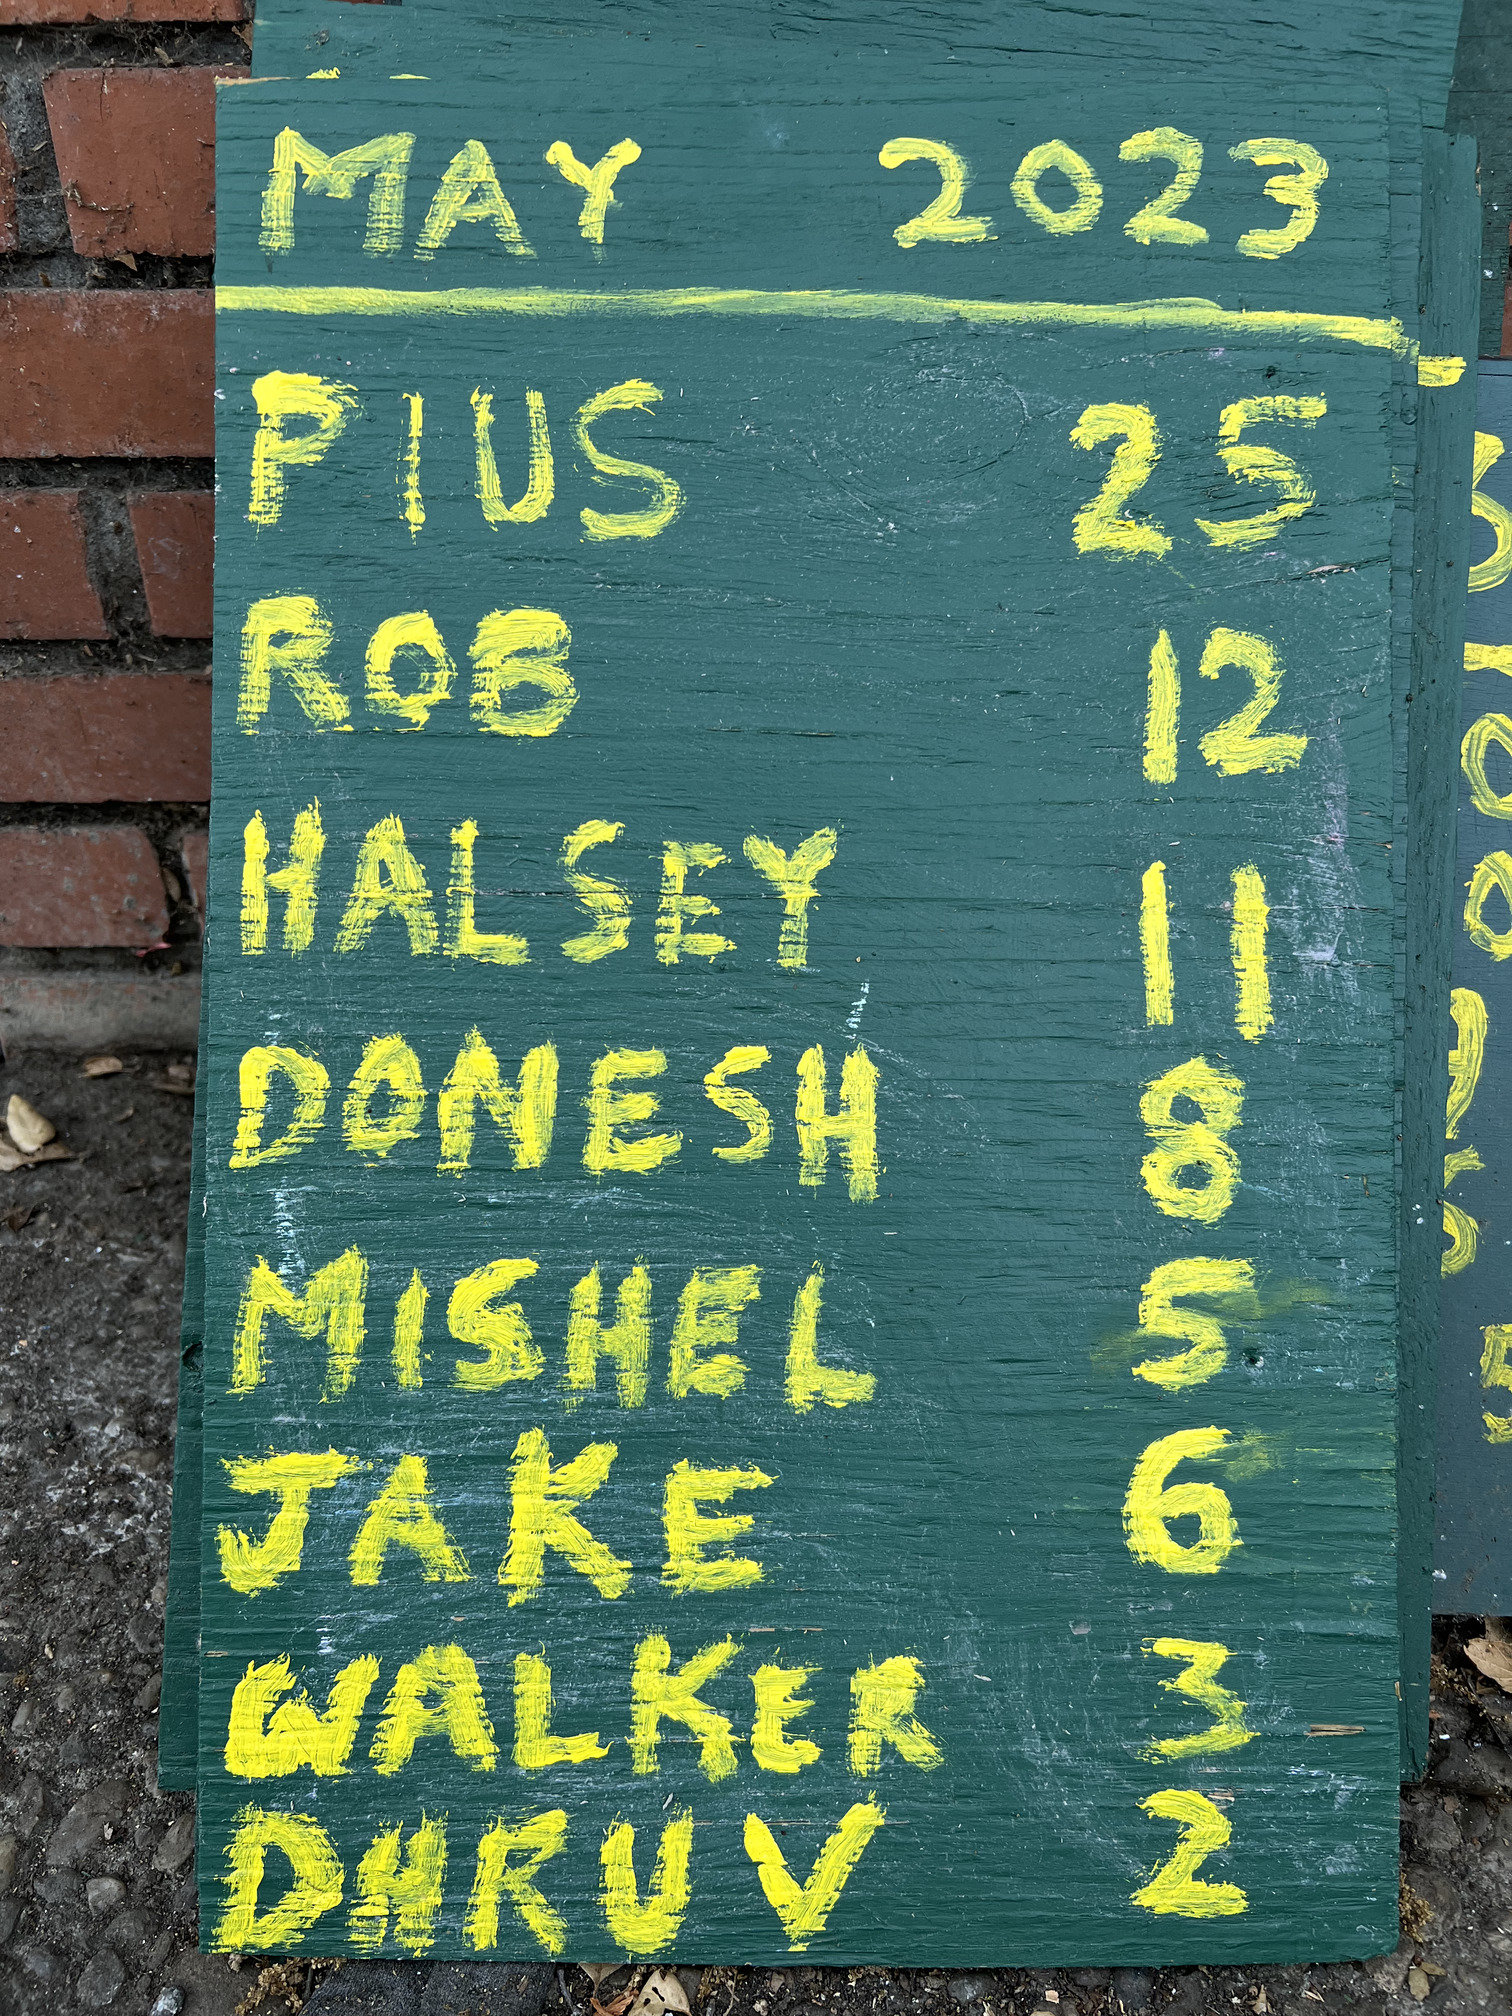 MAY 2023
PIUS 25
ROB 12
HALSEY 11
DONESH 8
MISHEL 5
JAKE 6
WALKER 3
DHRUV 2